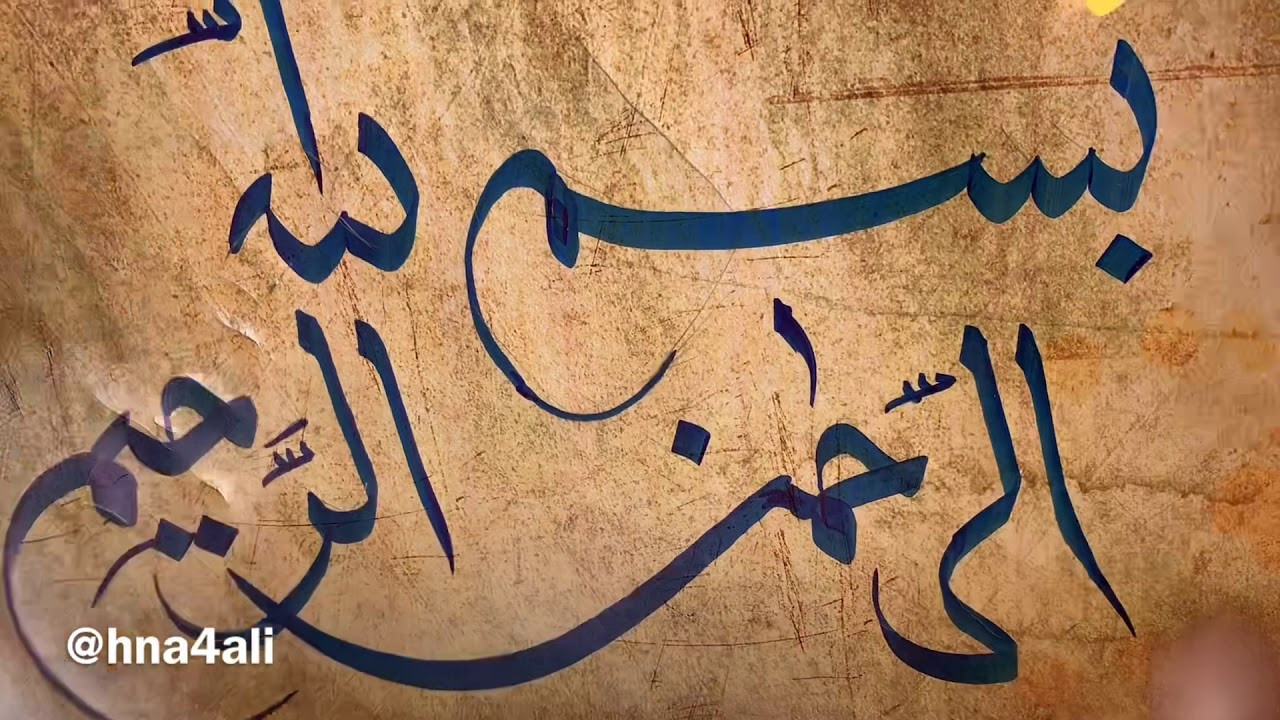 بسم الله
الرحمن الرحيم
@hna4ali